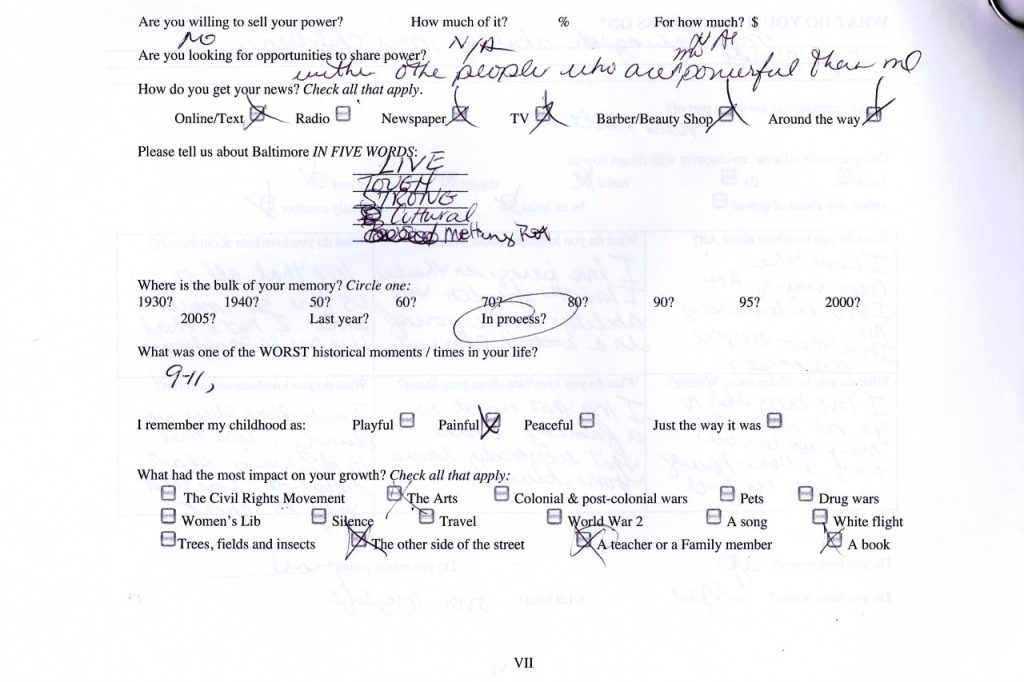 Are you willing to sell your power? How much of it? % For how much? $
NO N/A N/A
Are you looking for opportunities to share power?
with othe people who are more powerful than me
How do you get your news? Check all that apply.
Online/Text Radio Newspaper TV Barber/Beauty Shop Around the way
Please tell us about Baltimore IN FIVE WORDS:
LIVE
TOUGH
STRONG
Cultural
Melting Pot
Where is the bulk of your memory? Circle one:
1930? 1940? 50? 60? 70? 80? 90? 95? 2000?
2005? Last year? In process?
What was one of the WORST historical moments / times in your life?
9-11,
I remember my childhood as: Playful Painful Peaceful Just the way it was
What had the most impact on your growth? Check all that apply:
The Civil Rights Movement The Arts Colonial & post-colonial wars Pets Drug wars
Women's Lib Silence Travel World War 2 A song White flight
Trees, fields and insects The other side of the street A teacher or a Family member A book
VII